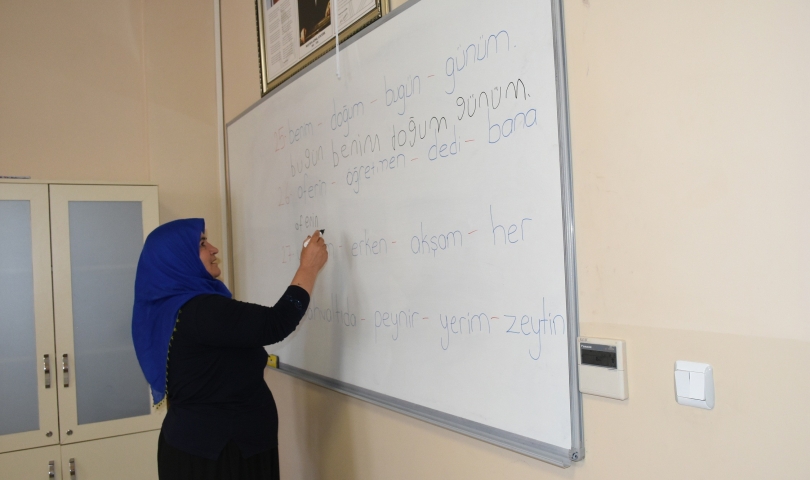 25 benim - doğum - bugün - günüm.
bugün benim doğum günüm.
26 aferin - öğretmen - dedi - bana
aferin
27 - erken - akşam - her
kahvaltıda - peynir - yerim - zeytin